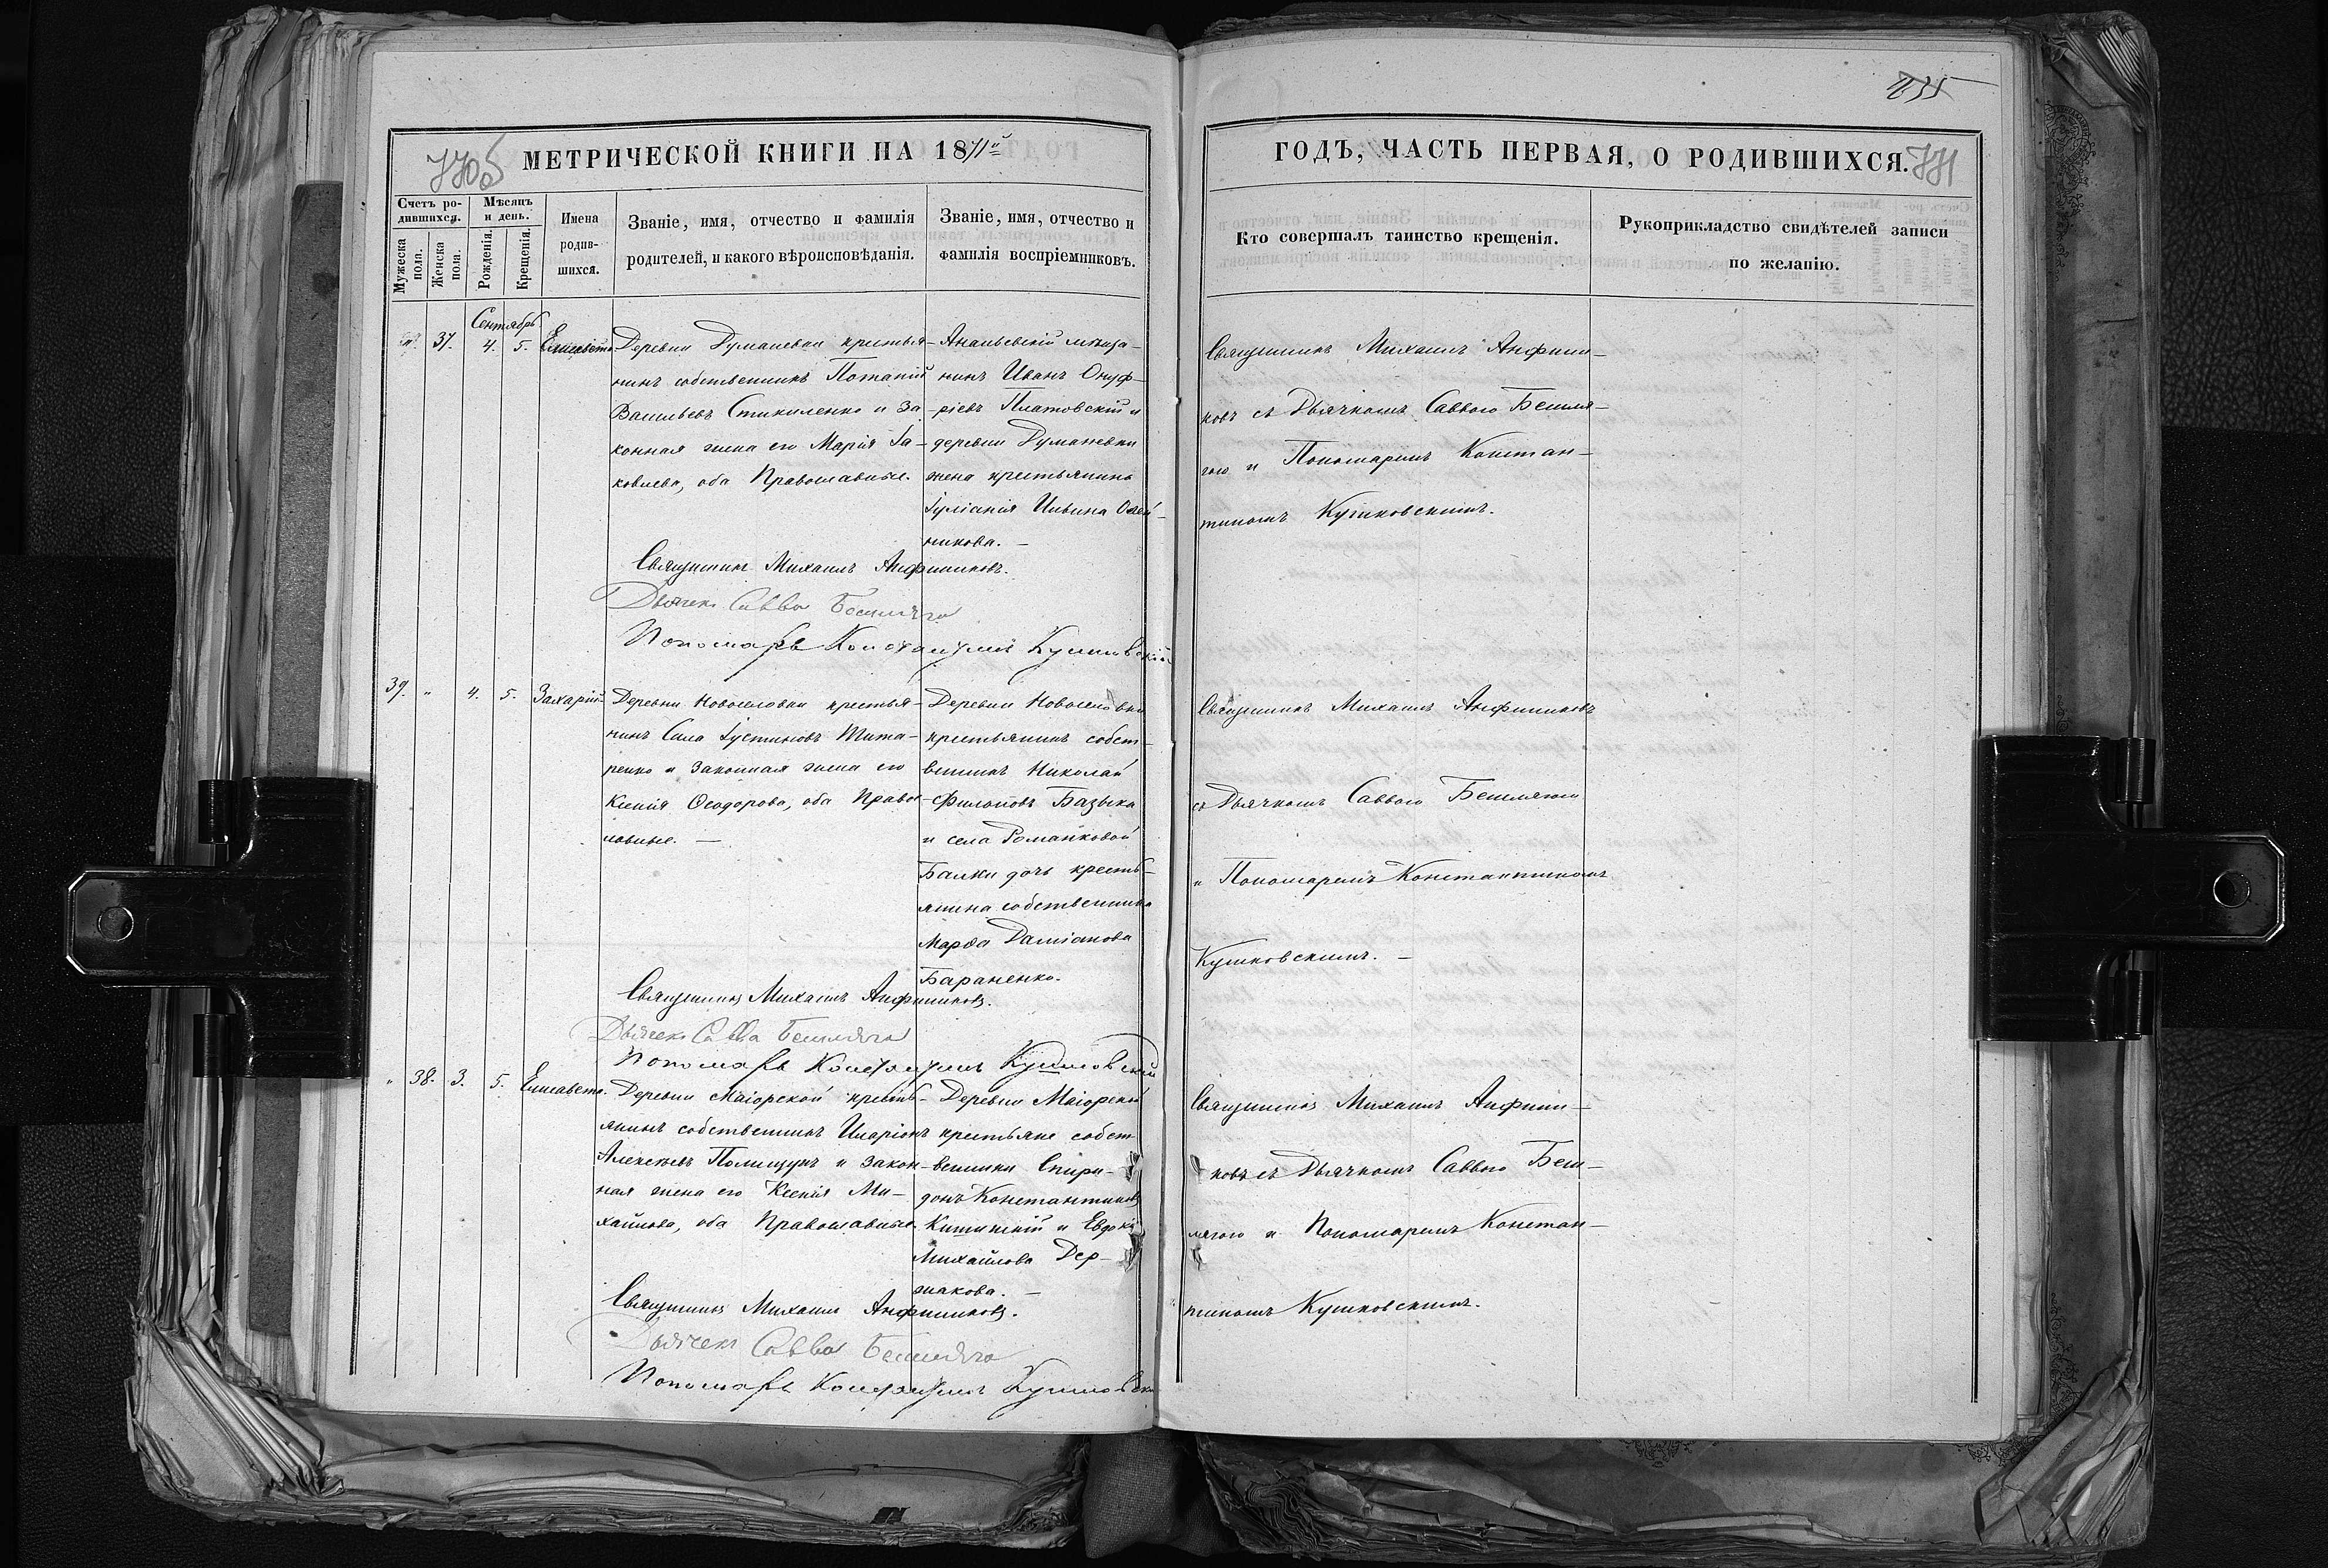 435
770б
МЕТРИЧЕСКОЙ КНИГИ НА 1871й
ГОДЪ, ЧАСТЬ ПЕРВАЯ, О РОДИВШИХСЯ.
771
Счетъ ро-
дившихся.
Мужеска
пола.
Женска
пола.
Мѣсяцъ
и день.
Рожденія.
Крещенія.
Имена
родив-
шихся.
Званіе, имя, отчество и фамилія
родителей, и какого вѣроисповѣданія.
Званіе, имя, отчество и
фамилія воспріемниковъ.
Кто совершалъ таинство крещенія.
Рукоприкладство свидѣтелей записи
по желанію.
Сентябрь
37. 4. 5. Елисавета.
Деревни Думаневки крестья-
нинъ собственникъ Потапій
Васильевъ Стикиленко и за
конная жена его Марія Іа-
ковлева, оба Православные.
Ананьевскій мѣща-
нинъ Иванъ Онуф-
ріевъ Платовскій и
деревни Думаневки
жена крестьянина
Іуліанія Ильина Олей-
никова. —
Священникъ Михаилъ Анфини-
ковъ съ Дьячкомъ Саввою Бешля-
гою и Пономаремъ Констан-
тиномъ Кушковскимъ.
Священникъ Михаилъ Анфиниковъ.
Дьячекъ Савва Бешляга
Пономарь Константинъ Кушковскій
39. " 4. 5. Захарій.
Деревни Новоселовки крестья-
нинъ Сила Іустиновъ Тита-
ренко и законная жена его
Ксенія Ѳеодорова, оба Правос-
лавные. —
Деревни Новоселовки
крестьянинъ собст-
венникъ Николай
Филиповъ Базыка
и села Романковой
Балки дочь кресть-
янина собственника
Марѳа Даміанова
Бараненко.
Священникъ Михаилъ Анфиниковъ
съ Дьячкомъ Саввою Бешлягою
и Пономаремъ Константиномъ
Кушковскимъ. —
Священникъ Михаилъ Анфиниковъ.
Дьячекъ Савва Бешляга
Пономарь Константинъ Кушковскій
" 38. 3. 5. Елисавета.
Деревни Маіорской кресть-
янинъ собственникъ Иларіонъ
Алексѣевъ Полищукъ и закон-
ная жена его Ксенія Ми-
хайлова, оба Православные.
Деревни Маіорской
крестьяне собст-
венники Спири-
донъ Константиновъ
и Евдокія
Михайлова Дер-
жакова. —
Священникъ Михаилъ Анфини-
ковъ съ Дьячкомъ Саввою Беш-
лягою и Пономаремъ Констан-
тиномъ Кушковскимъ.
Священникъ Михаилъ Анфиниковъ.
Дьячекъ Савва Бешляга
Пономарь Константинъ Кушковскій